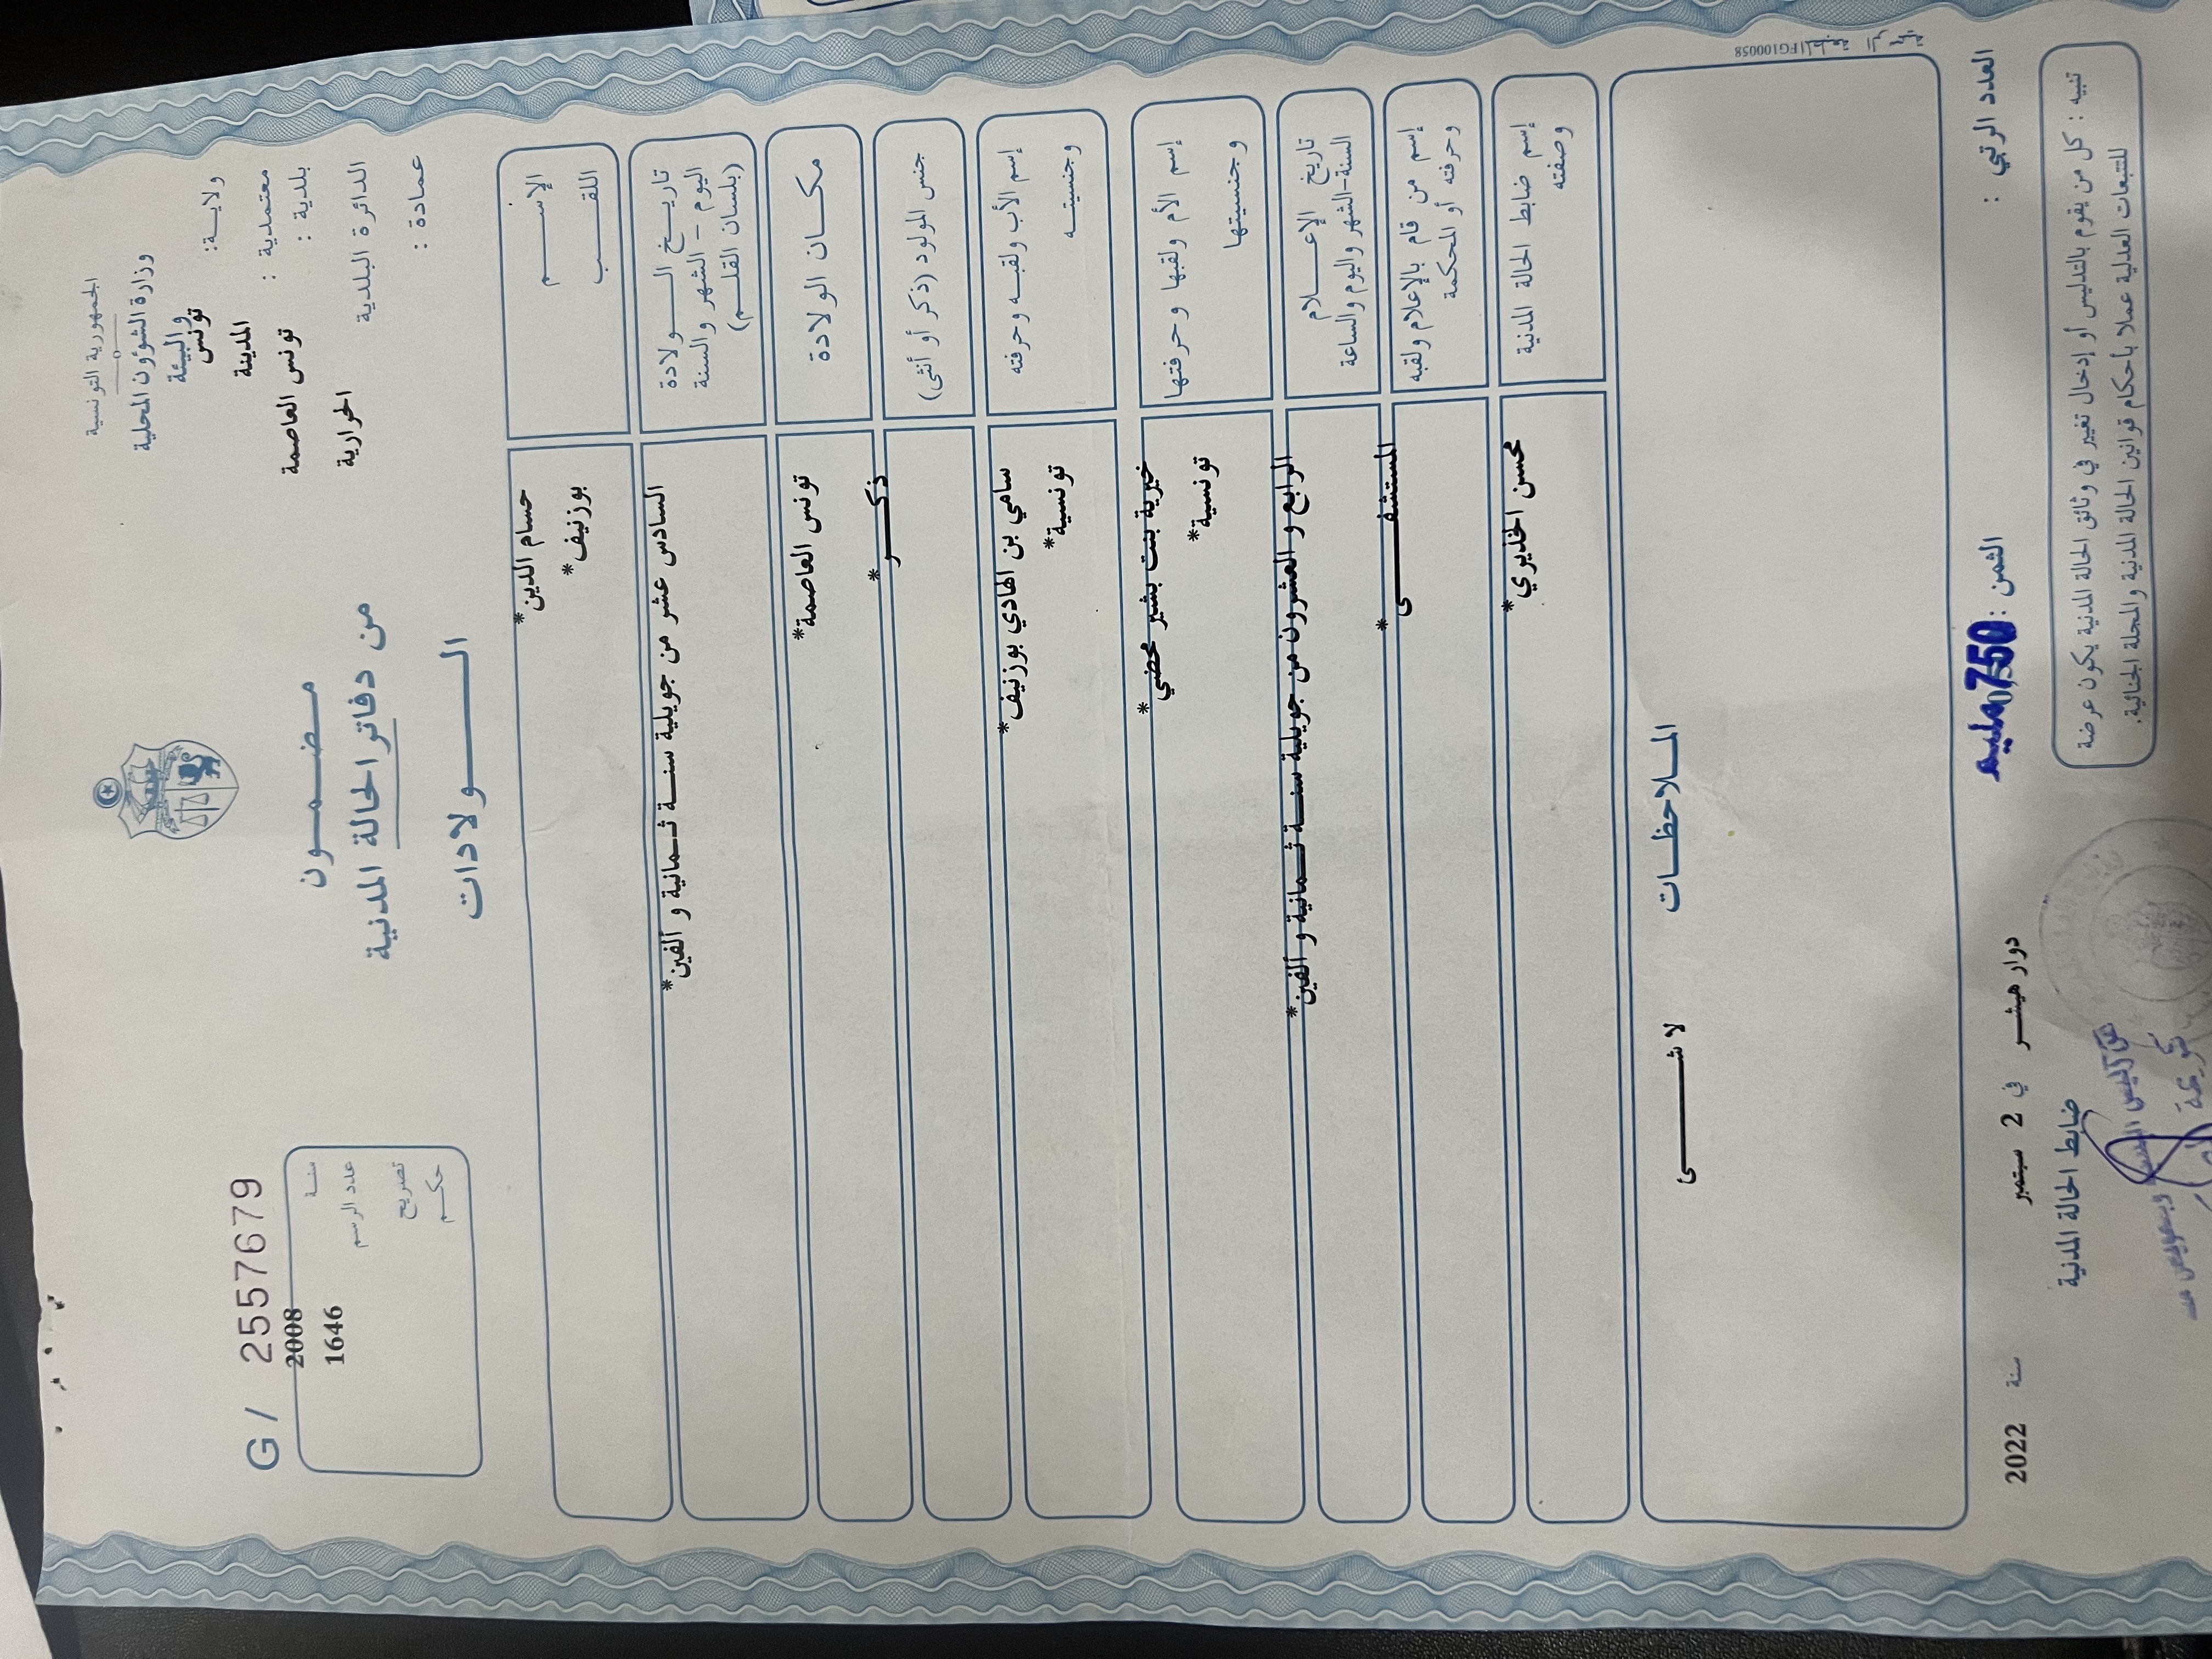 الجمهورية التونسية
وزارة الشؤون المحلية
والبيئة
ولايـة: تونس
معتمدية : المدينة
بلدية : تونس العاصمة
الدائرة البلدية الحرايرية
عمادة :
مـضـمـــون
من دفاتر الحالة المدنية
الــــــولادات
G / 2557679
سنـة 2008
عدد الرسم 1646
تصريح
حكـم
الإسـم حسام الدين*
اللقـب بوزنيف*
تاريـخ الــــولادة
اليوم - الشهر والسنة
(بلسان القلـم)
السادس عشر من جويلية سنـة ثـمانية و ألفين*
مكـان الولادة تونس العاصمة*
جنس المولود (ذكر أو أنثى) ذكـــر*
إسم الأب ولقبـه وحرفته سامي بن الهادي بوزنيف*
وجنسيتـه تونسية*
إسم الأم ولقبها وحرفتـها خيرية بنت بشير محضي*
وجنسيتها تونسية*
تاريخ الإعـــلام
السنة-الشهر واليوم والساعة
الرابع و العشرون من جويلية سنـة ثـمانية و ألفين*
إسم من قام بالإعلام ولقبه
وحرفته أو المحكمة
المستشفــــى*
إسم ضابط الحالة المدنية
وصفته
محسن الخذيري*
المـلاحظـات
لا شــــئ
FG100058
العدد الرتبي :
الثمن : 750 مليم
دوار هيشـر في 2 سبتمبر سنة 2022
ضابط الحالة المدنية
تنبيه : كل من يقوم بالتدليس أو إدخال تغيير في وثائق الحالة المدنية يكون عرضة
للتتبعات العدلية عملا بأحكام قوانين الحالة المدنية والمجلة الجنائية.